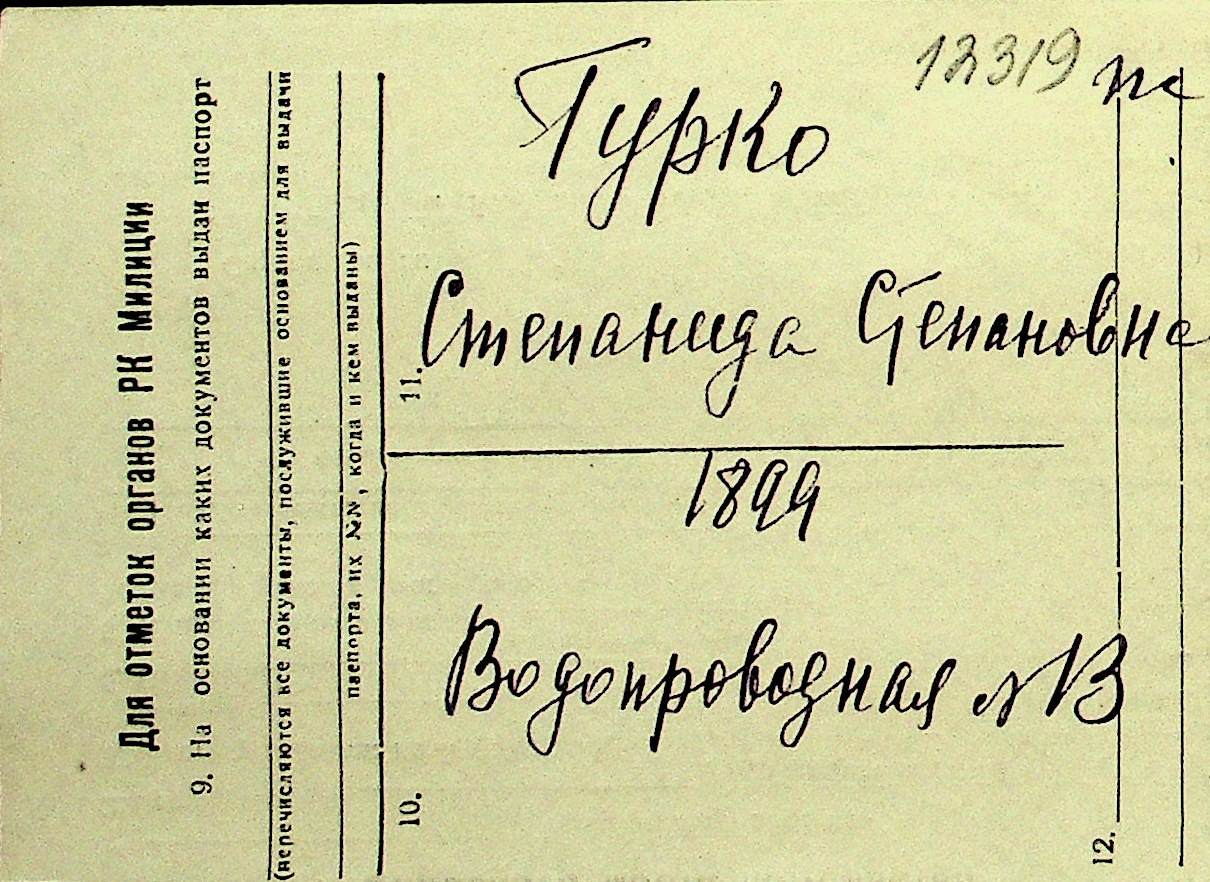 12319
Турко
Степанида Степановна
1899
Водопроводная 13
Для отметок органов РК Милиции
9. На основании каких документов выдан паспорт
(перечисляются все документы, послужившие основанием для выдачи
паспорта, их №№, когда и кем выданы)
10.
11.
12.